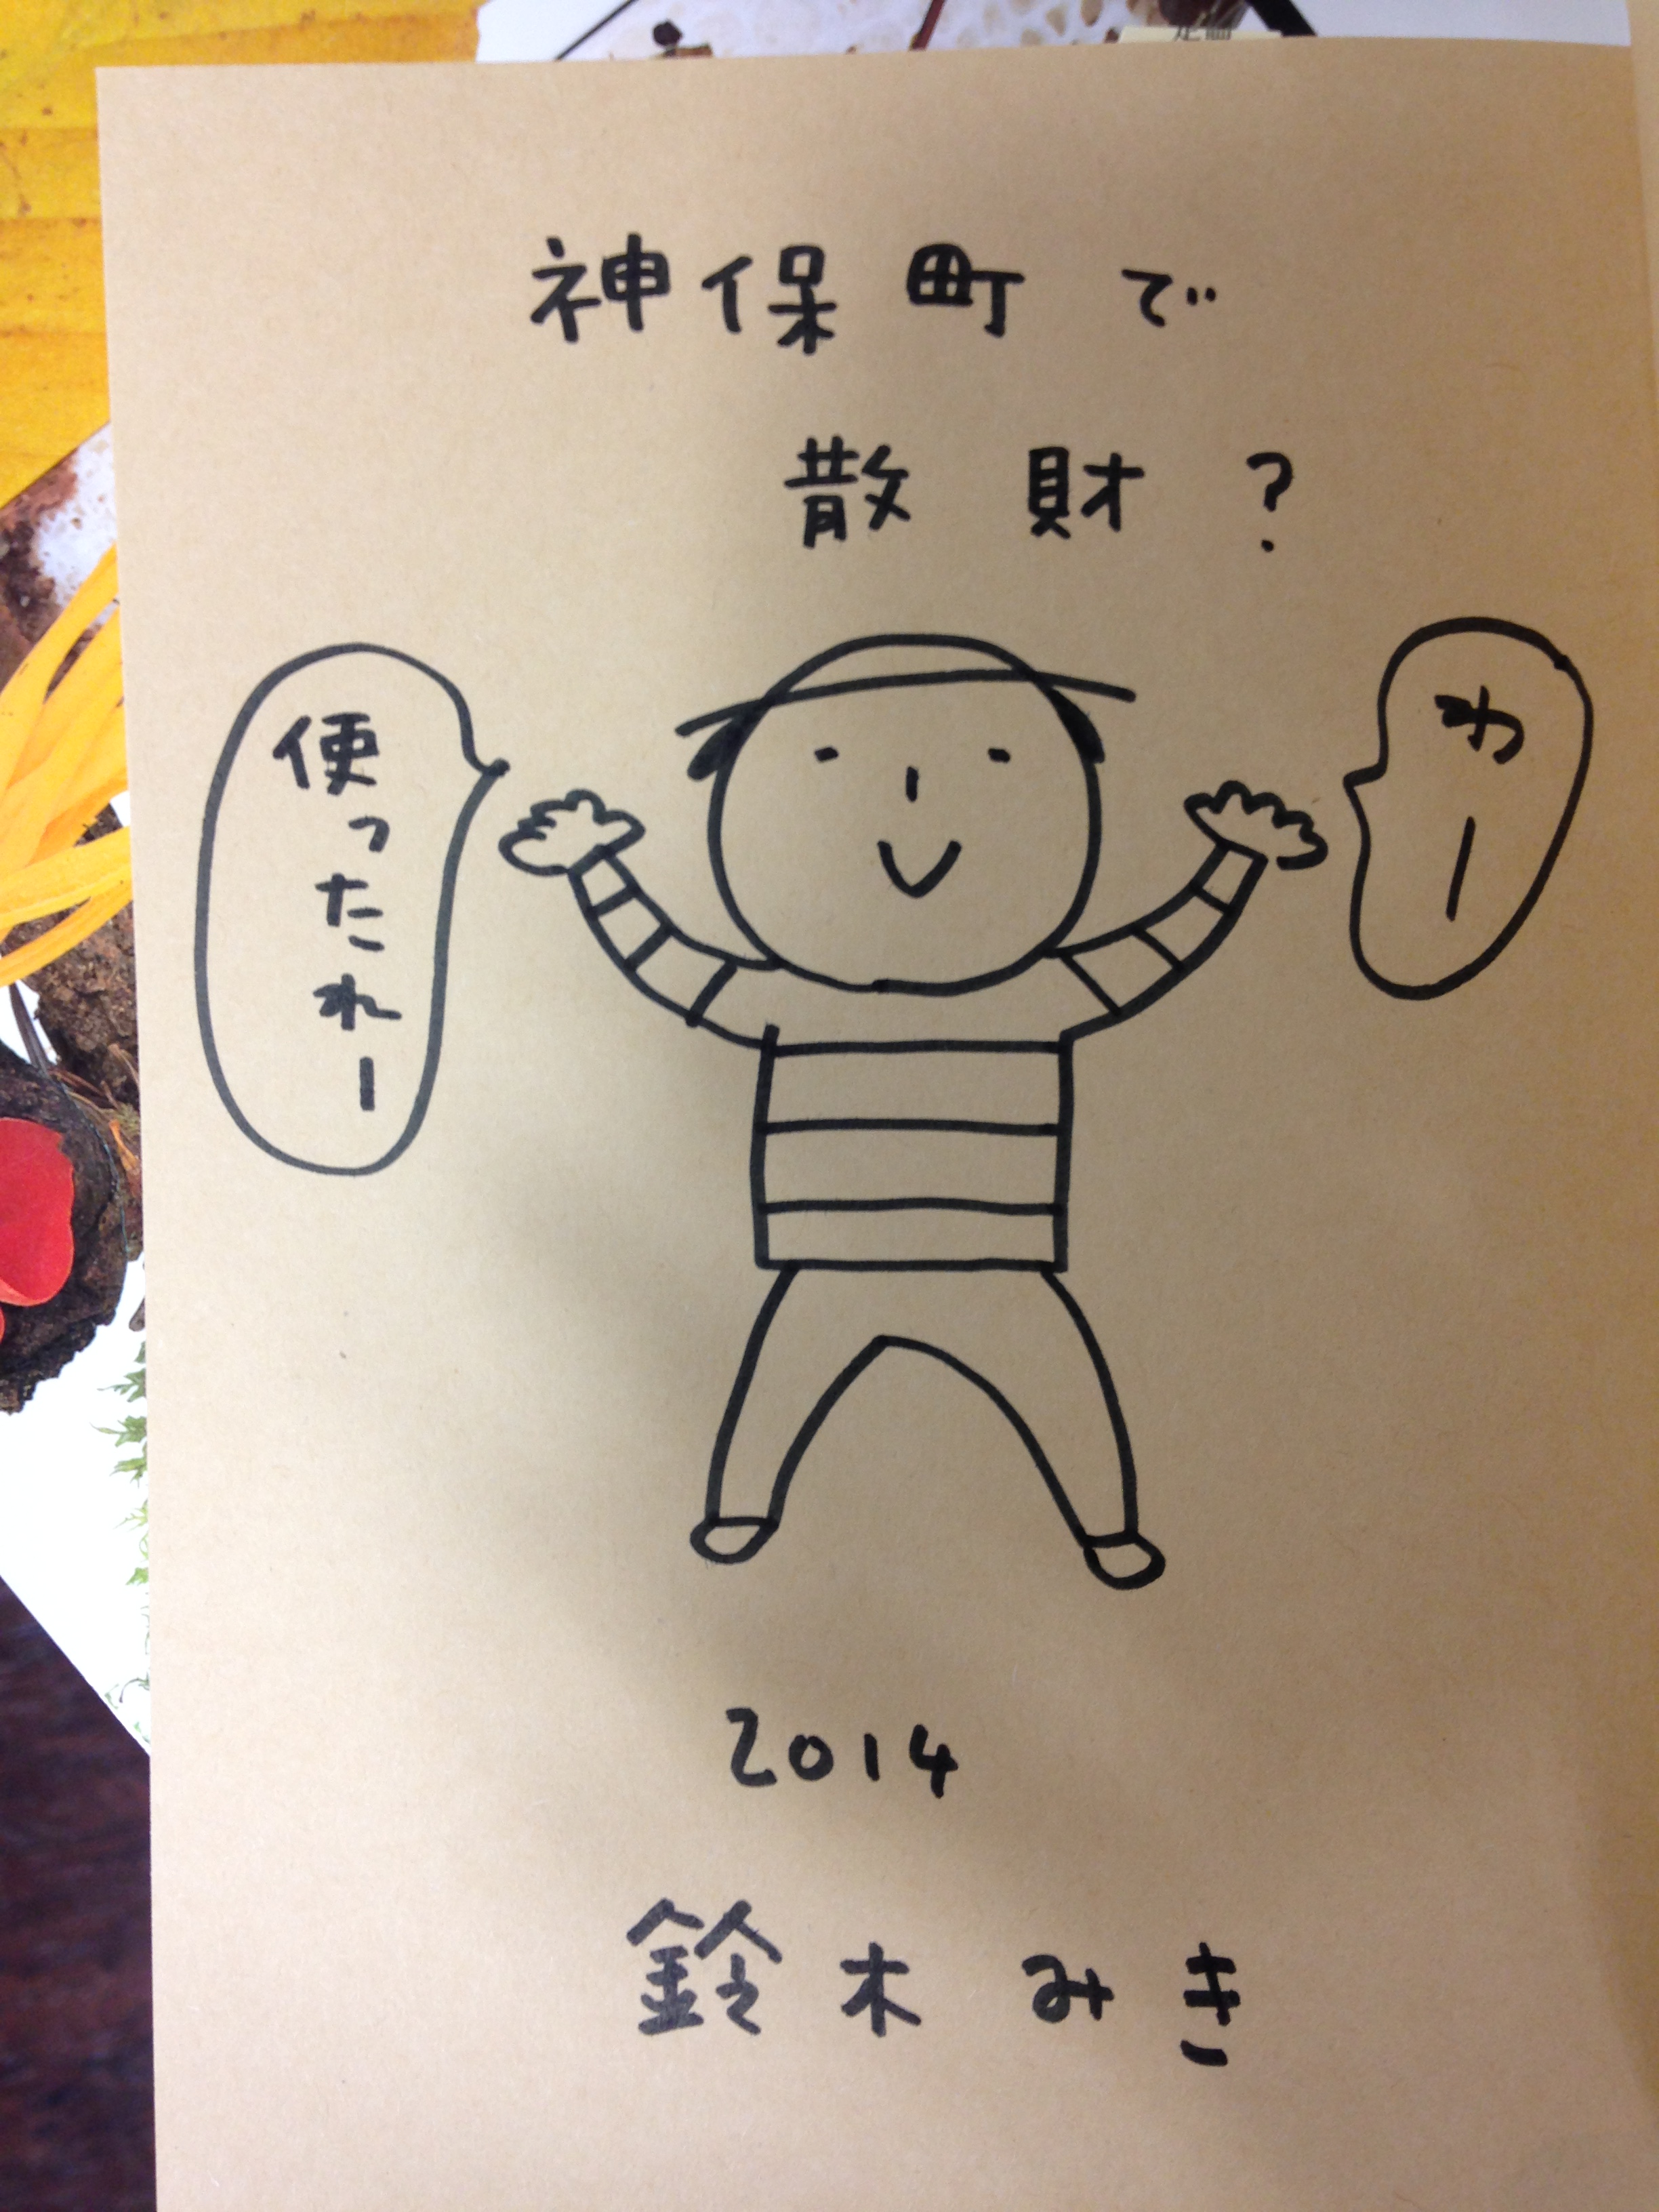 神保町で
散財?
わー
使ったれー
2014
鈴木みき